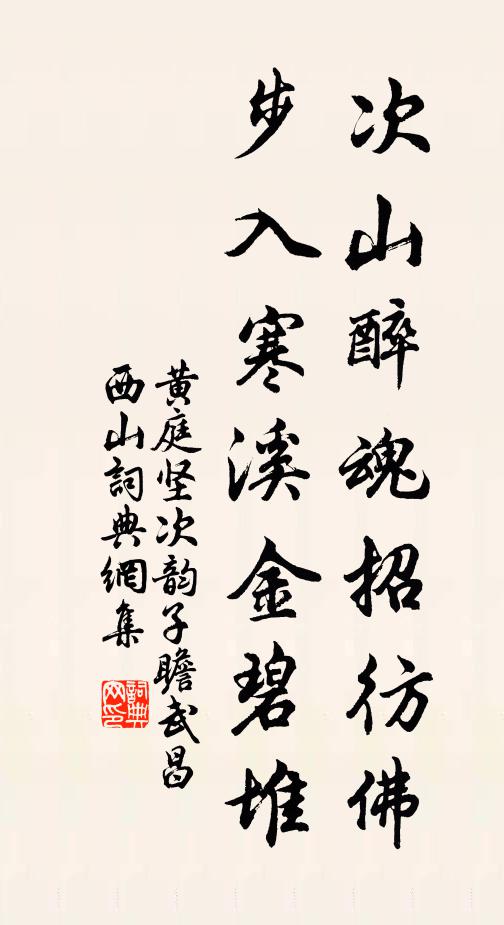 次山醉魂招彷佛
步入寒溪金碧堆
黄庭坚次韵子瞻武昌
西山詞典網集
詞典
网印